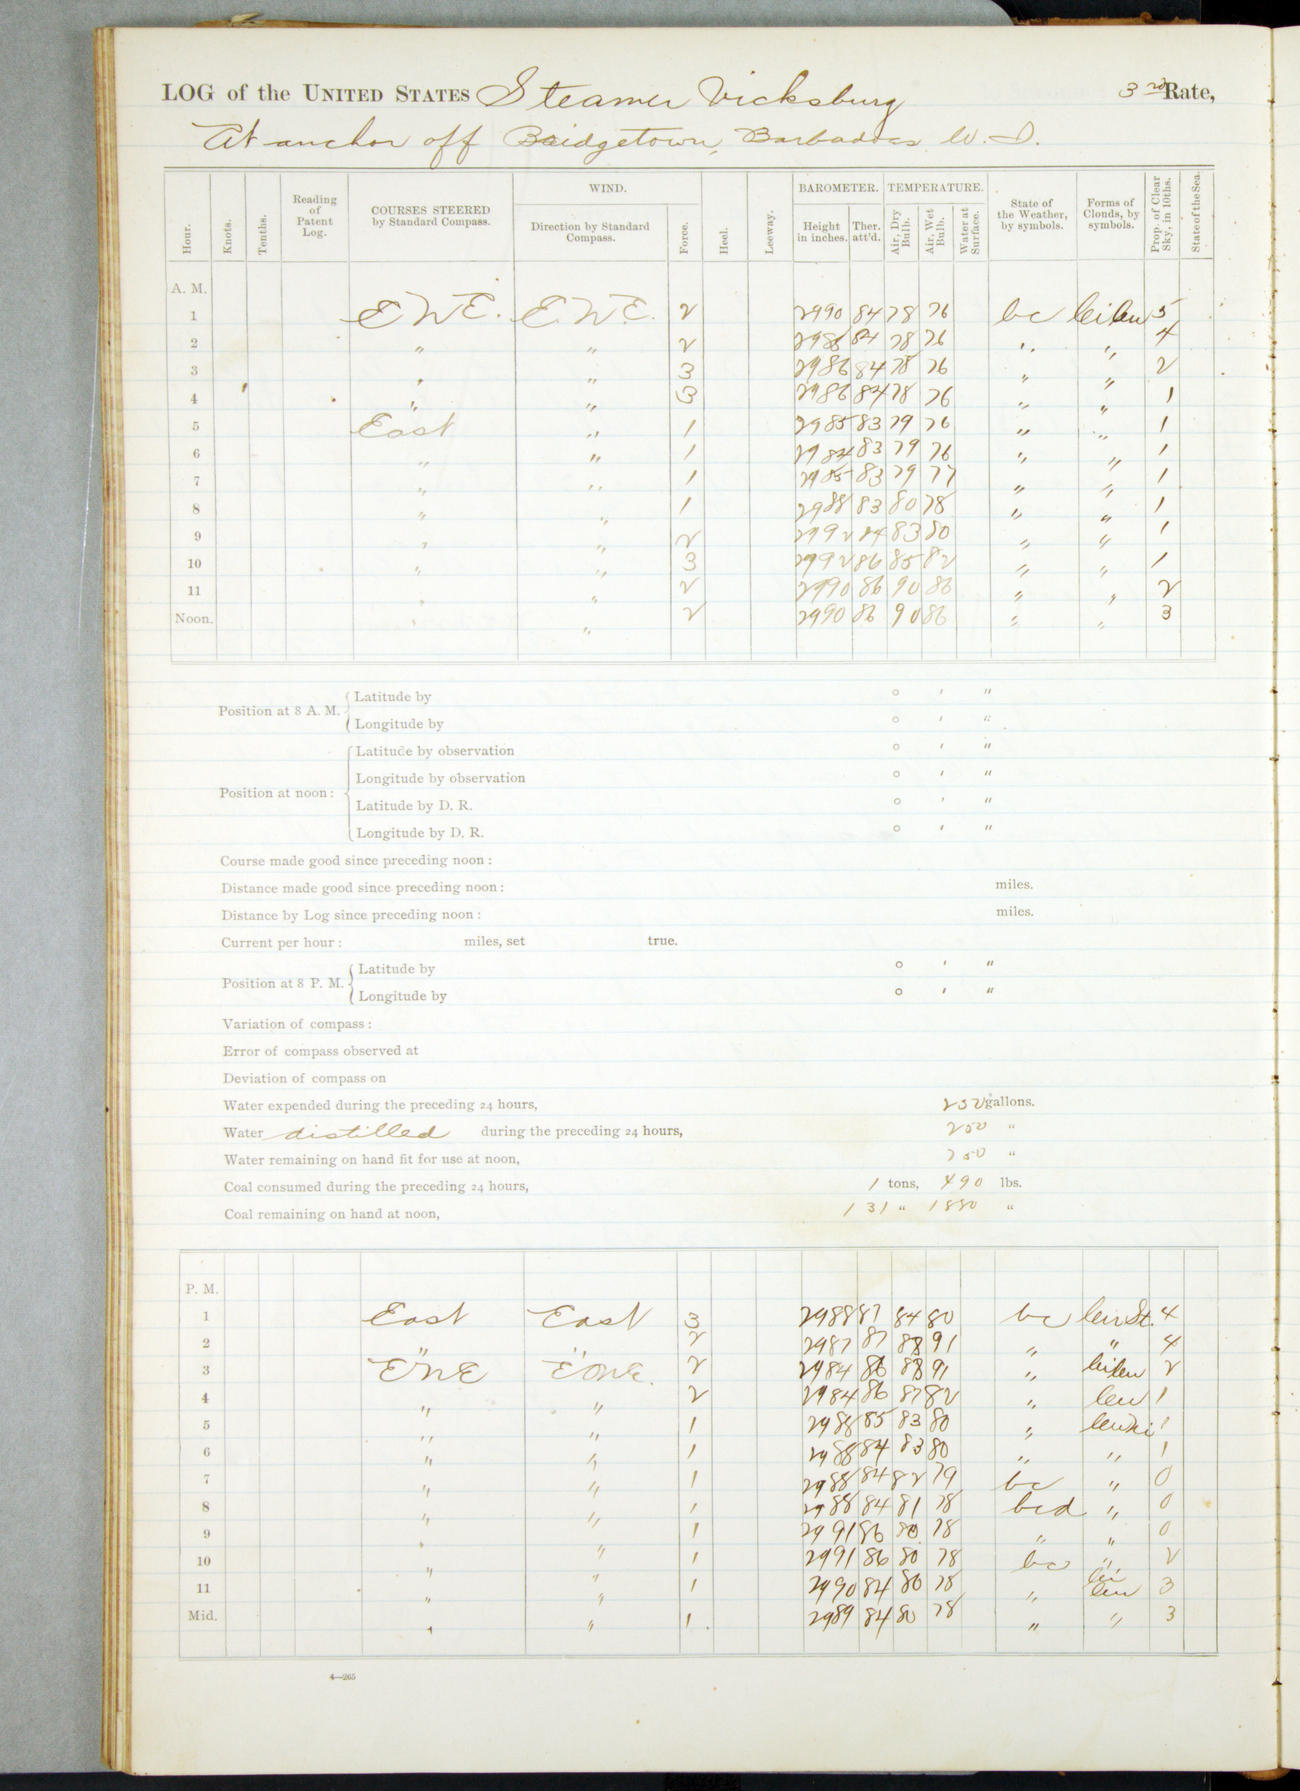 LOG of the UNITED STATES Steamer Vicksburg 3rd Rate,
At anchor off Bridgetown, Barbadoes W. I.
Hour. Knots. Tenths. Reading of Patent Log. COURSES STEERED by Standard Compass. WIND. Direction by Standard Compass. Force. Heel. Leeway. BAROMETER. Height in inches. Ther. att'd. TEMPERATURE. Air, Dry Bulb. Air, Wet Bulb. Water at Surface. State of the Weather, by symbols. Forms of Clouds, by symbols. Prop. of Clear Sky, in 10ths. State of the Sea.
A. M.
1 ENE. ENE. 2 2990 84 78 76 bc cicu 5
2 " " 2 2988 84 78 76 " " 4
3 " " 3 2986 84 78 76 " " 2
4 " " 3 2986 84 78 76 " " 1
5 East " 1 2985 83 79 76 " " 1
6 " " 1 2984 83 79 76 " " 1
7 " " 1 2985 83 79 77 " " 1
8 " " 1 2988 83 80 78 " " 1
9 " " 2 2992 84 83 80 " " 1
10 " " 3 2992 86 85 82 " " 1
11 " " 2 2990 86 90 86 " " 2
Noon. " " 2 2990 86 90 86 " " 3
Position at 8 A. M. Latitude by ° ' "
Longitude by ° ' "
Position at noon: Latitude by observation ° ' "
Longitude by observation ° ' "
Latitude by D. R. ° ' "
Longitude by D. R. ° ' "
Course made good since preceding noon:
Distance made good since preceding noon: miles.
Distance by Log since preceding noon: miles.
Current per hour: miles, set true.
Position at 8 P. M. Latitude by ° ' "
Longitude by ° ' "
Variation of compass:
Error of compass observed at
Deviation of compass on
Water expended during the preceding 24 hours, 250 gallons.
Water distilled during the preceding 24 hours, 200 "
Water remaining on hand fit for use at noon, 750 "
Coal consumed during the preceding 24 hours, 1 tons, 490 lbs.
Coal remaining on hand at noon, 131 " 1880 "
P. M.
1 East East 3 2988 87 84 80 bc cu St. 4
2 " " 2 2987 87 88 91 " " 4
3 ENE ENE. 2 2984 86 88 91 " cicu 2
4 " " 2 2984 86 87 82 " cu 1
5 " " 1 2988 85 83 80 " cuni 1
6 " " 1 2988 84 83 80 " " 1
7 " " 1 2988 84 82 79 bc " 0
8 " " 1 2988 84 81 78 bcd " 0
9 " " 1 2991 86 80 78 " " 0
10 " " 1 2991 86 80 78 bc " 2
11 " " 1 2990 84 80 78 " ci cu 3
Mid. " " 1 2989 84 80 78 " " 3
4—265